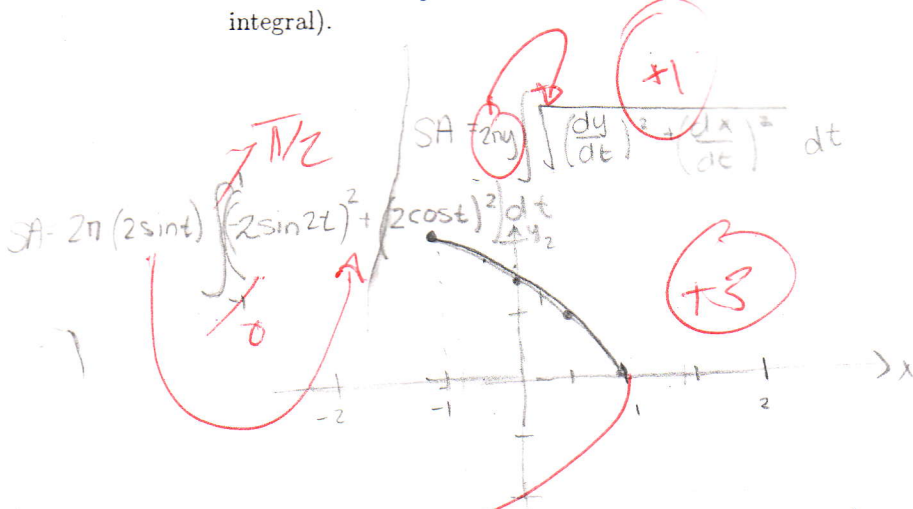 integral).
+1
SA = 2πy ∫ √((dy/dt)² + (dx/dt)²) dt
π/2
SA = 2π (2sint) ∫ (-2sin2t)² + (2cost)² dt
-1
0
y
2
+3
-2 -1 1 2 x